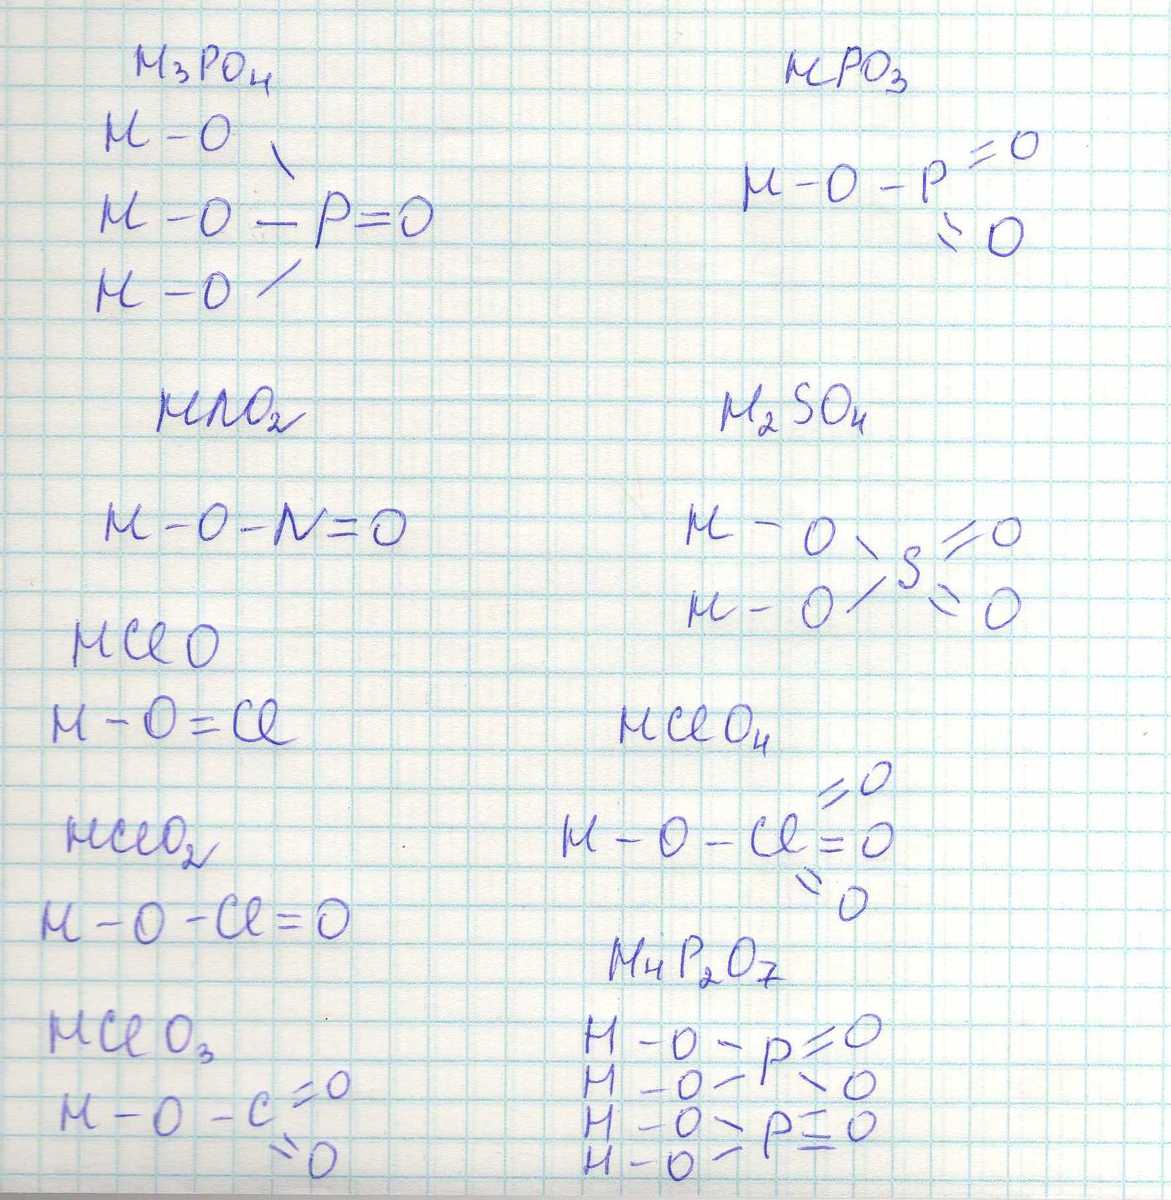 H₃PO₄
H-O
H-O-P=O
H-O
HPO₃
H-O-P=O
=O
HNO₂
H-O-N=O
H₂SO₄
H-O S=O
H-O =O
HClO
H-O=Cl
HClO₄
=O
H-O-Cl=O
=O
HClO₂
H-O-Cl=O
H₄P₂O₇
H-O-P=O
H-O- -O
H-O-P=O
H-O-
HClO₃
H-O-C=O
=O